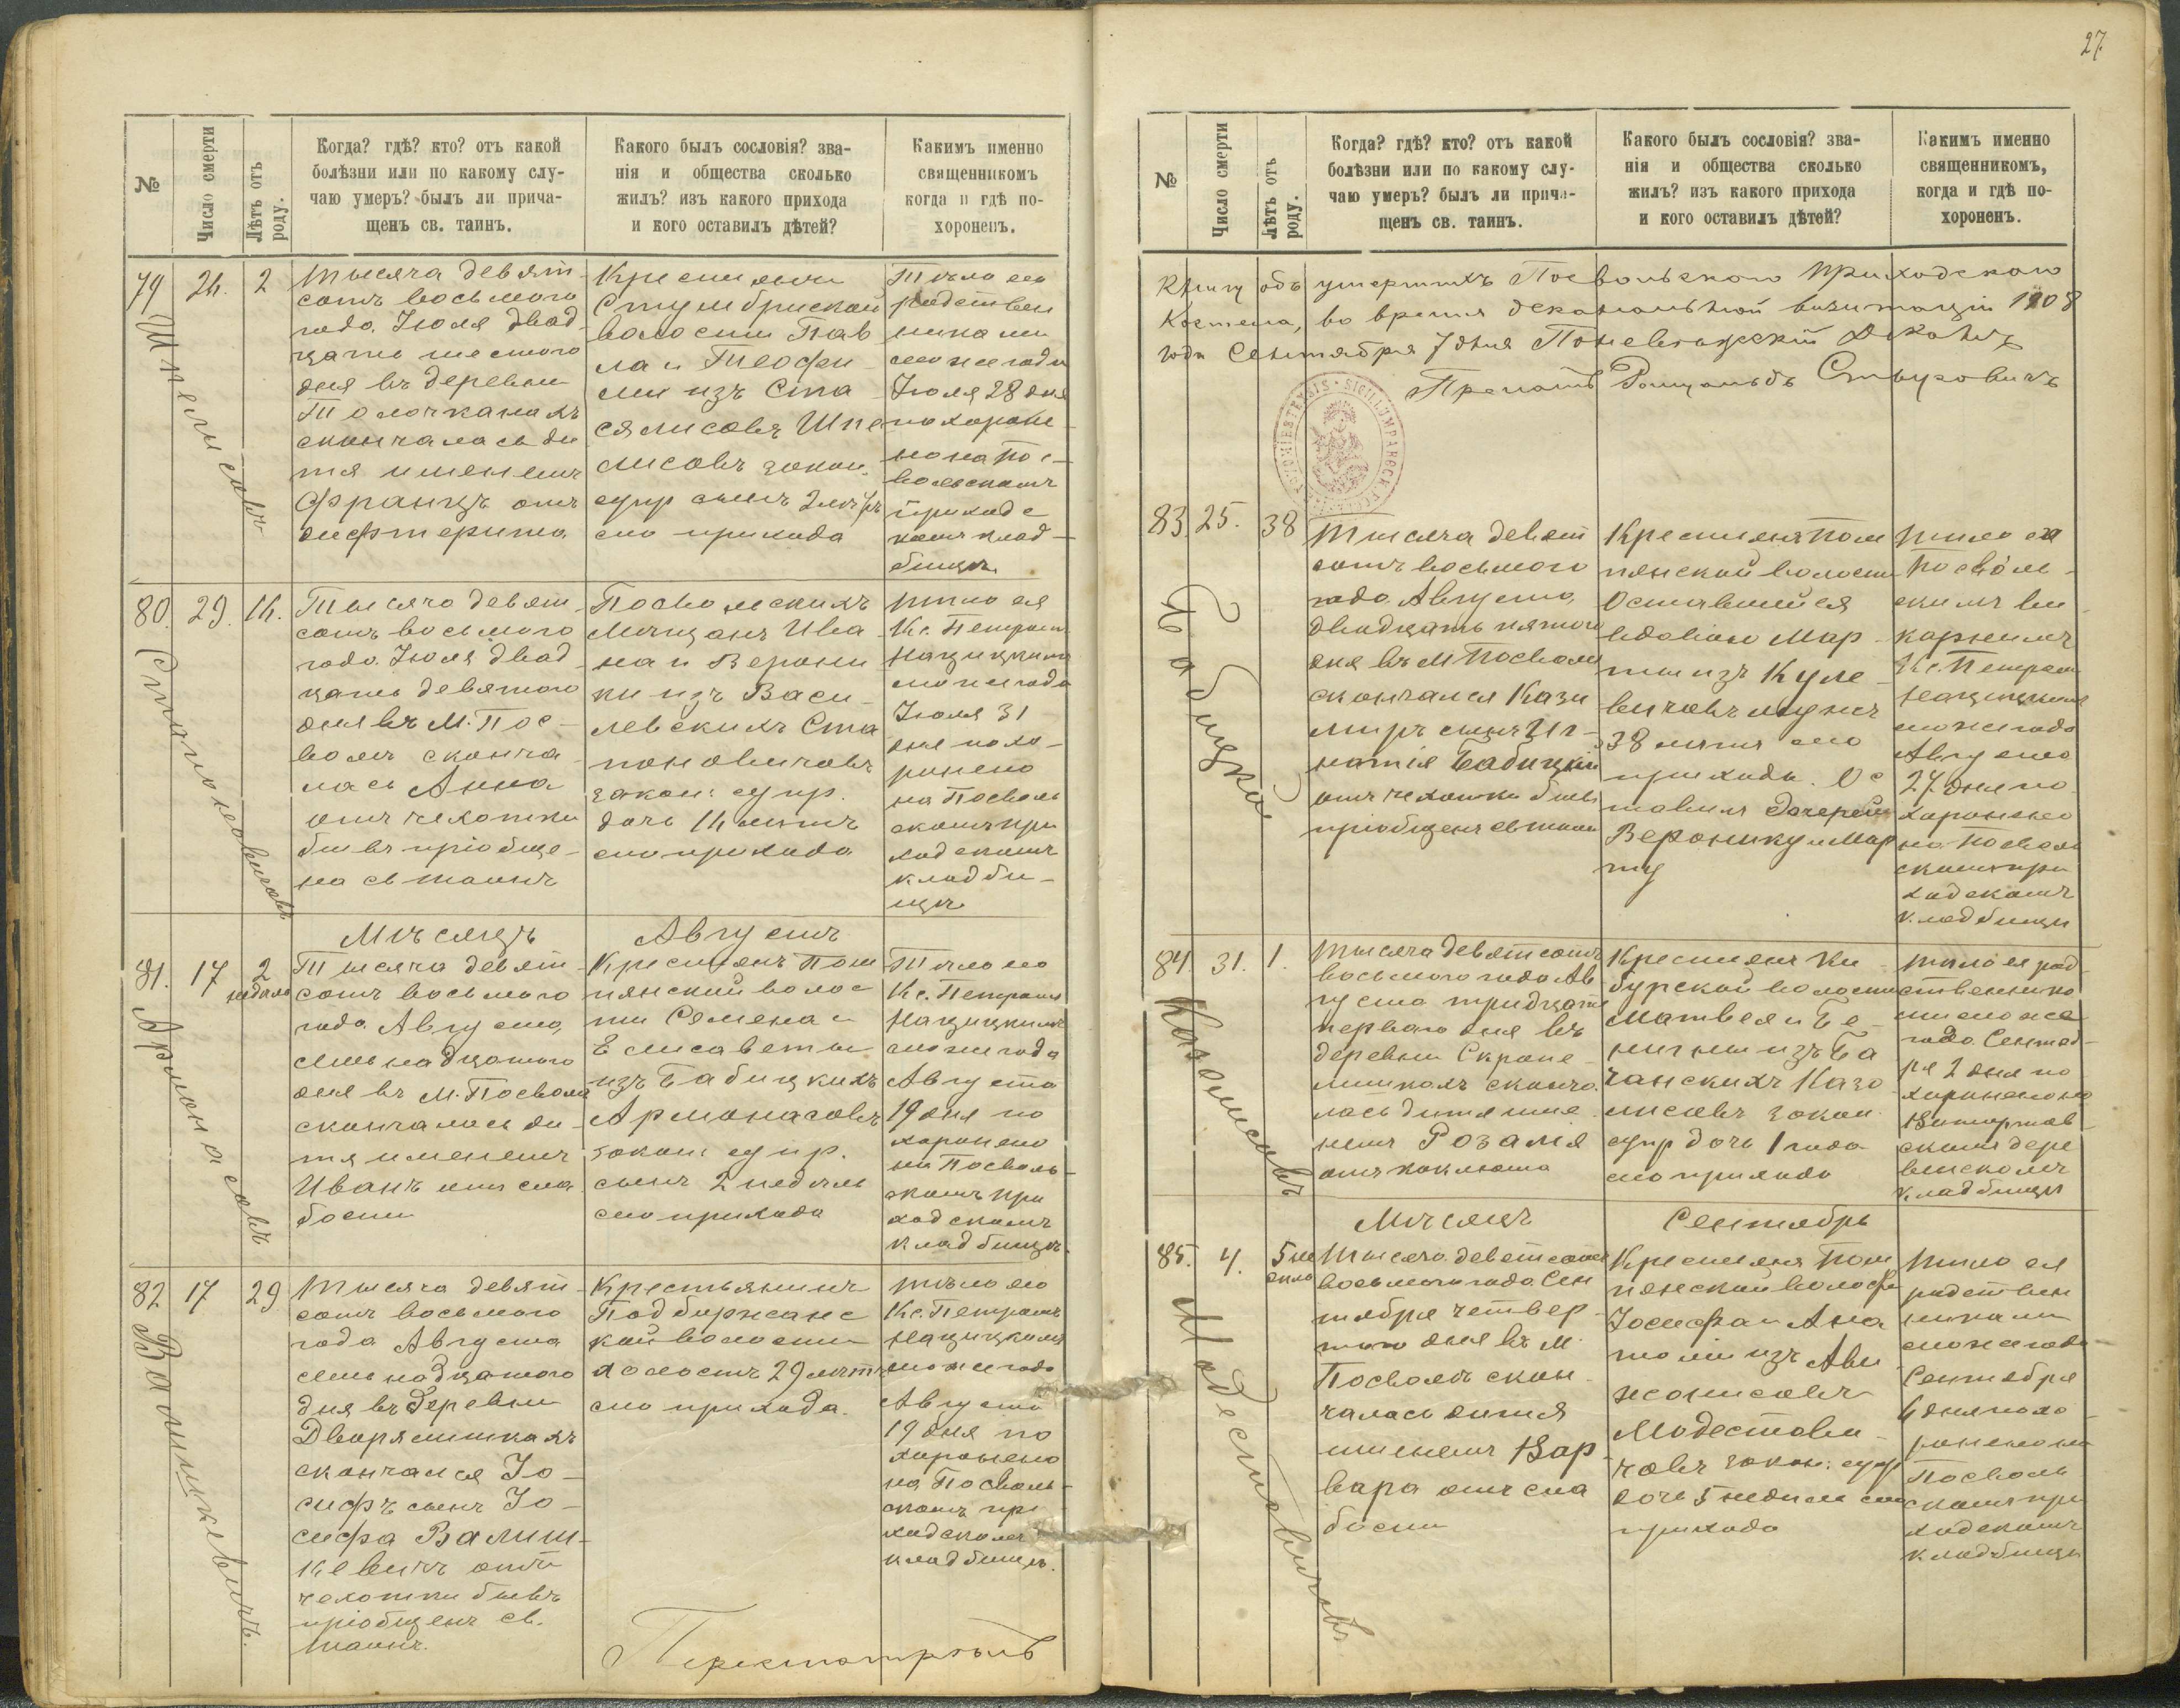 27
№
Число смерти
Лѣтъ отъ роду.
Когда? гдѣ? кто? отъ какой
болѣзни или по какому слу-
чаю умеръ? былъ ли прича-
щенъ св. таинъ.
Какого былъ сословія? зва-
нія и общества сколько
жилъ? изъ какого прихода
и кого оставилъ дѣтей?
Какимъ именно
священникомъ
когда и гдѣ по-
хороненъ.
79
26.
2
Тысяча девят-
сотъ восьмого
года Іюля двад-
цать шестого
дня въ деревни
скончалась ди
тя именемъ
Францъ отъ
дифтерита
Крестьянъ
волости Пав
ла и Теофи
лии изъ Ста
закон.
супр сынъ 2 лѣтъ
сего прихода
Тѣло его
родствен
никами
сего же года
Іюля 28 дня
похороне
но на Пос-
вольскомъ
приход с
комъ клад-
бищѣ
80.
29.
16.
Тысяча девят-
сотъ восьмого
года Іюля двад-
цать девятого
дня въ М. Пос-
волѣ сконча
лась Анна
отъ чехотки
бывъ пріобще-
на св таинъ
Посвольскихъ
Мѣщанъ Ива
на и Верони
ки изъ Васи-
левскихъ Ста
поновичовъ
закон: супр.
дочь 16 лѣтъ
сего прихода
тѣло ея
Кс. Петромъ
сего же года
Іюля 31
дня похо-
ронено
на Посволь
скомъ при
ходскомъ
кладби-
щѣ
Мѣсяцъ Августъ
81.
17
2
недѣли
Армонасовъ
Тысяча девят-
сотъ восьмого
года Августа
семнадцатого
дня въ М. Посволѣ
скончалось ди-
тя именемъ
Иванъ отъ сла
бости
Крестьянъ Пом
пянской волос
ти Семена и
Елисаветы
изъ Бабицкихъ
Армонасовъ
закон: супр.
сынъ 2 недѣль
сего прихода
Тѣло его
Кс. Петромъ
сего же года
Августа
19 дня по
хоронено
на Посволь-
скомъ при
ходскомъ
кладбищѣ.
82
17
29
Валишкевичъ.
Тысяча девят-
сотъ восьмого
года Августа
семнадцатого
дня въ деревни
Дворялишкахъ
скончался Іо-
сифъ сынъ Іо-
сифа Валиш-
кевичъ отъ
чехотки бывъ
пріобщенъ св.
таинъ.
Крестьянинъ
Подбиржанс
кой волости
холостъ 29 лѣтъ
сего прихода.
тѣло его
Кс. Петромъ
сего же года
Августа
19 дня по
хоронено
на Посволь-
скомъ при
ходскомъ
кладбищѣ.
№
Число смерти
Лѣтъ отъ роду.
Когда? гдѣ? кто? отъ какой
болѣзни или по какому слу-
чаю умеръ? былъ ли прича-
щенъ св. таинъ.
Какого былъ сословія? зва-
нія и общества сколько
жилъ? изъ какого прихода
и кого оставилъ дѣтей?
Какимъ именно
священникомъ,
когда и гдѣ по-
хороненъ.
Книгу объ умершихъ Посвольскаго Приходскаго
Костела, во время деканальной визитаціи 1908
года Сентября 7 дня Поневѣжскій Деканъ
Прелатъ
83.
25.
38
Бабицкій
Тысяча девят
сотъ восьмого
года Августа
двадцать пятого
дня въ М Посволѣ
скончался Кази
миръ сынъ Иг-
натія Бабицкій
отъ чехотки бывъ
пріобщенъ св таинъ
Крестьянъ Пом
пянской волости
Оставшейся
вдовою Мар-
ты изъ Куле-
вичовъ мужъ
38 лѣтъ сего
прихода. Ос
тавилъ дочерей
Веронику и Мар
ту
тѣло его
Посволь-
скимъ ви
карнымъ
Кс. Петромъ
сего же года
Августа
27 дня по
хоронено
на Посволь
скомъ при
ходскомъ
кладбищѣ
84.
31.
1.
Тысяча девятсотъ
восьмого года Ав
густа тридцать
перваго дня въ
деревни
сконча
лась дитя име
немъ Розалія
отъ коклюша
Крестьянъ
волости
Матвея и
закон
супр дочь 1 года
сего прихода
тѣло ея род
ственника
ми сего же
года Сентяб-
ря 2 дня по
хоронено на
скомъ дере
венскомъ
кладбищѣ
Мѣсяцъ Сентябрь
85.
4.
Модестовичовъ
Тысяча девятсотъ
восьмого года Сен
тября четвер-
таго дня въ М.
Посволѣ скон-
чалась дитя
именемъ Вар-
вара отъ сла
бости
Крестьянъ Пом
пянской волости
Іосифа и Ана
толіи изъ
Модестови-
човъ закон: супр
дочь 5 недѣль сего
прихода
тѣло ея
родствен
никами
сего же года
Сентября
6 дня похо
ронено на
Посволь
скомъ при
ходскомъ
кладбищѣ